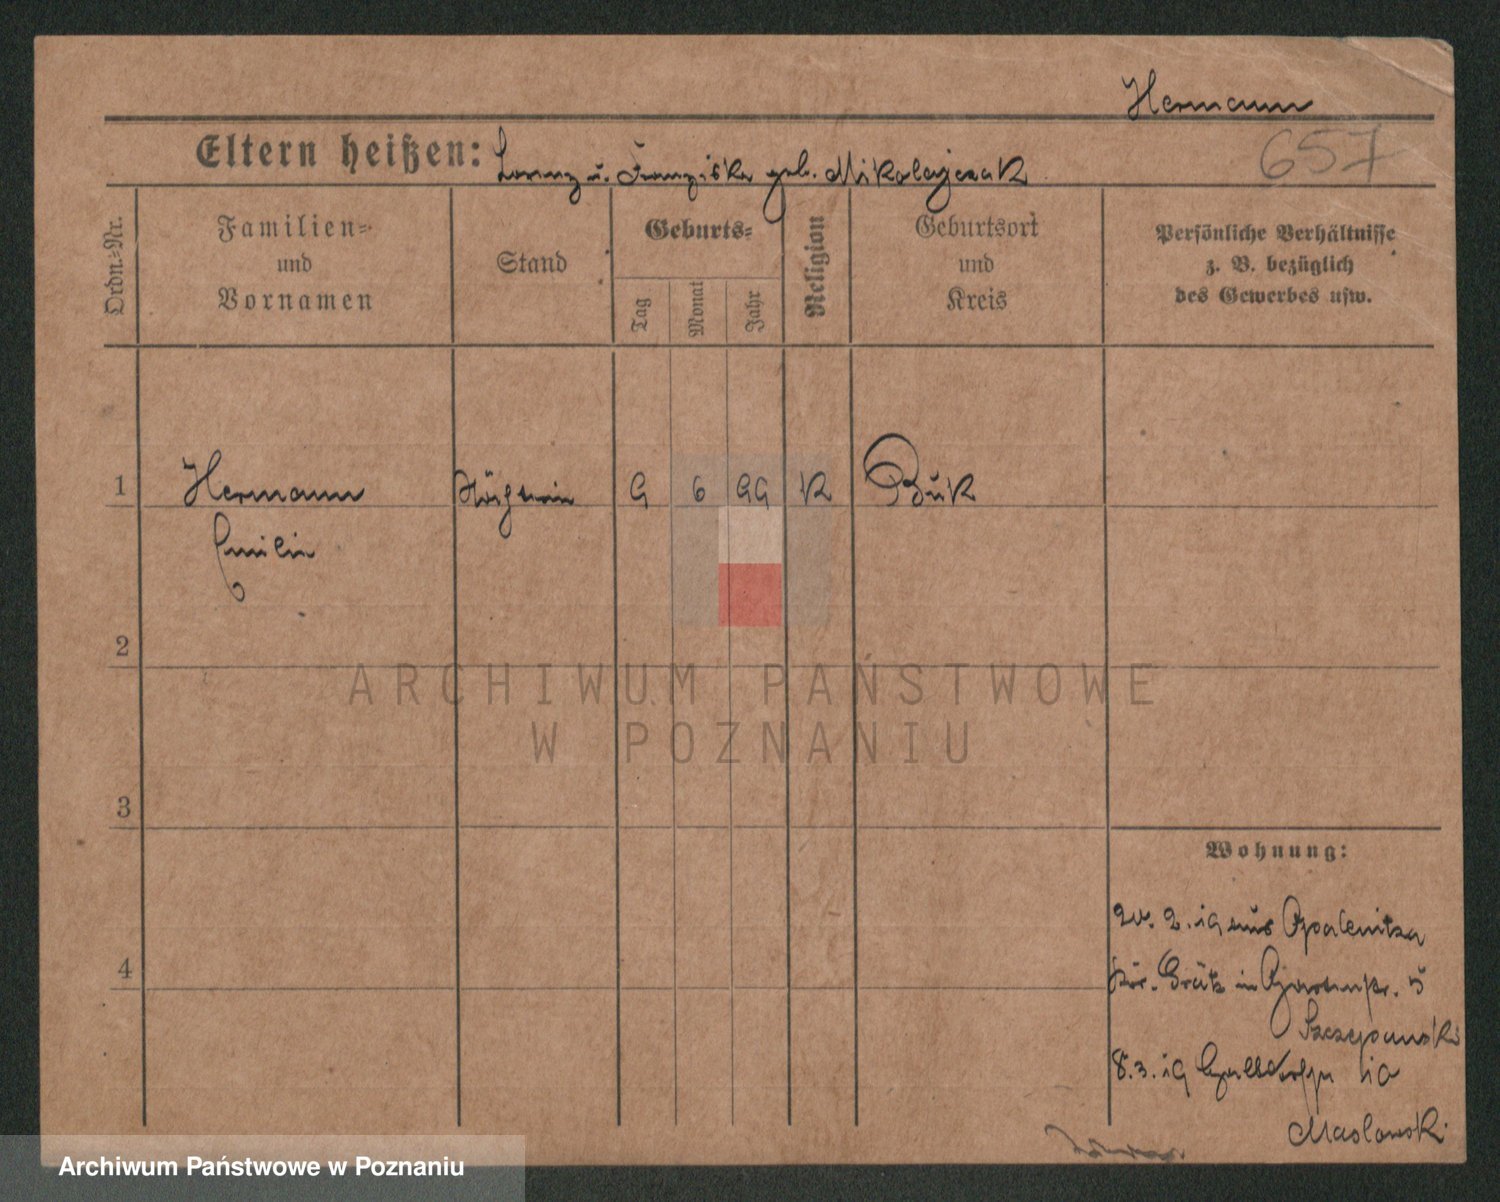 Hermann
657
Eltern heißen: Lorenz u. Franziska geb. Mikolajczak
Ordn.-Nr.
Familien-
und
Vornamen
Stand
Geburts-
Tag
Monat
Jahr
Religion
Geburtsort
und
Kreis
Persönliche Verhältnisse
z. B. bezüglich
des Gewerbes usw.
1 Hermann Köchin 9 6 99 K Buk
Emilie
2
3
4
ARCHIWUM PAŃSTWOWE
W POZNANIU
Wohnung:
20. 2. 19 aus Opalenitza
Kr. Grätz in Gartenstr. 5
Szczepanski
8. 3. 19 10
Maslowski
Archiwum Państwowe w Poznaniu